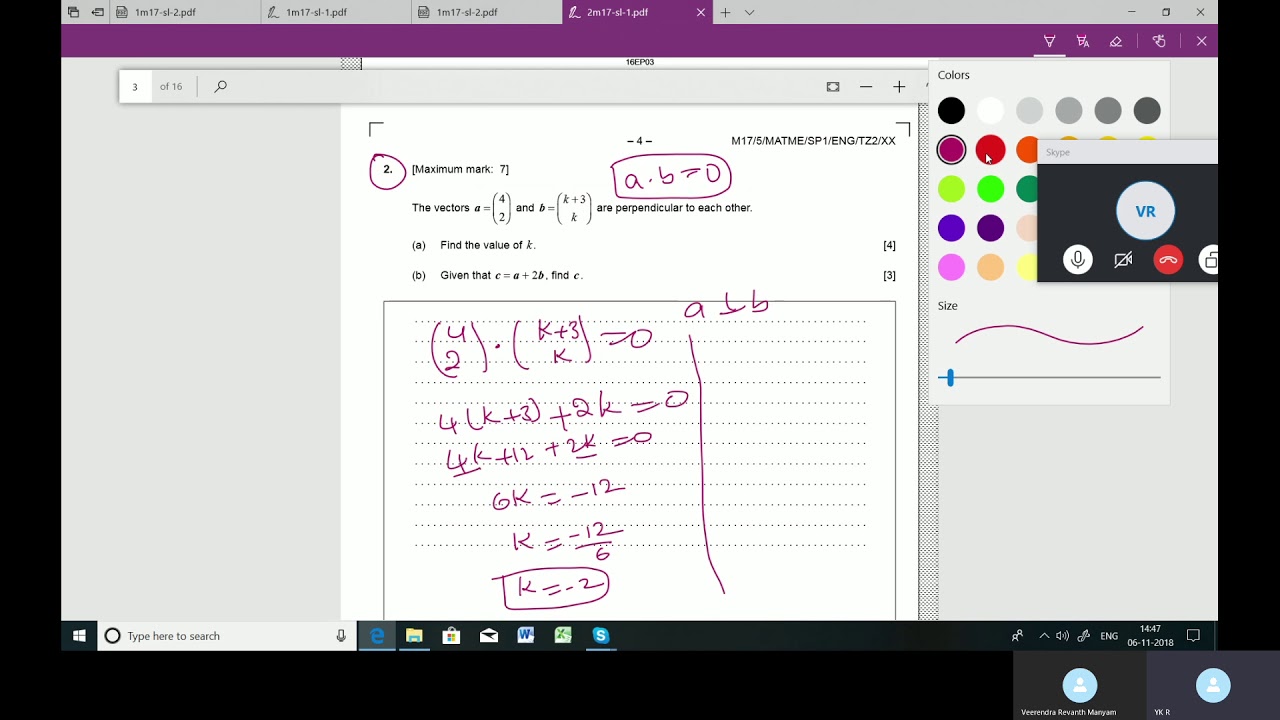 1m17-sl-2.pdf
1m17-sl-1.pdf
1m17-sl-2.pdf
2m17-sl-1.pdf
16EP03
3 of 16
Colors
– 4 –
M17/5/MATME/SP1/ENG/TZ2/XX
Skype
2. [Maximum mark: 7]
a.b=0
The vectors a = (4 2) and b = (k+3 k) are perpendicular to each other.
VR
(a) Find the value of k. [4]
(b) Given that c = a + 2b, find c. [3]
Size
a ⊥ b
(4 2) . (k+3 k) = 0
4(k+3) + 2k = 0
4k+12 + 2k = 0
6k = -12
k = -12/6
k = -2
Type here to search
ENG
14:47
06-11-2018
Veerendra Revanth Manyam
YK R